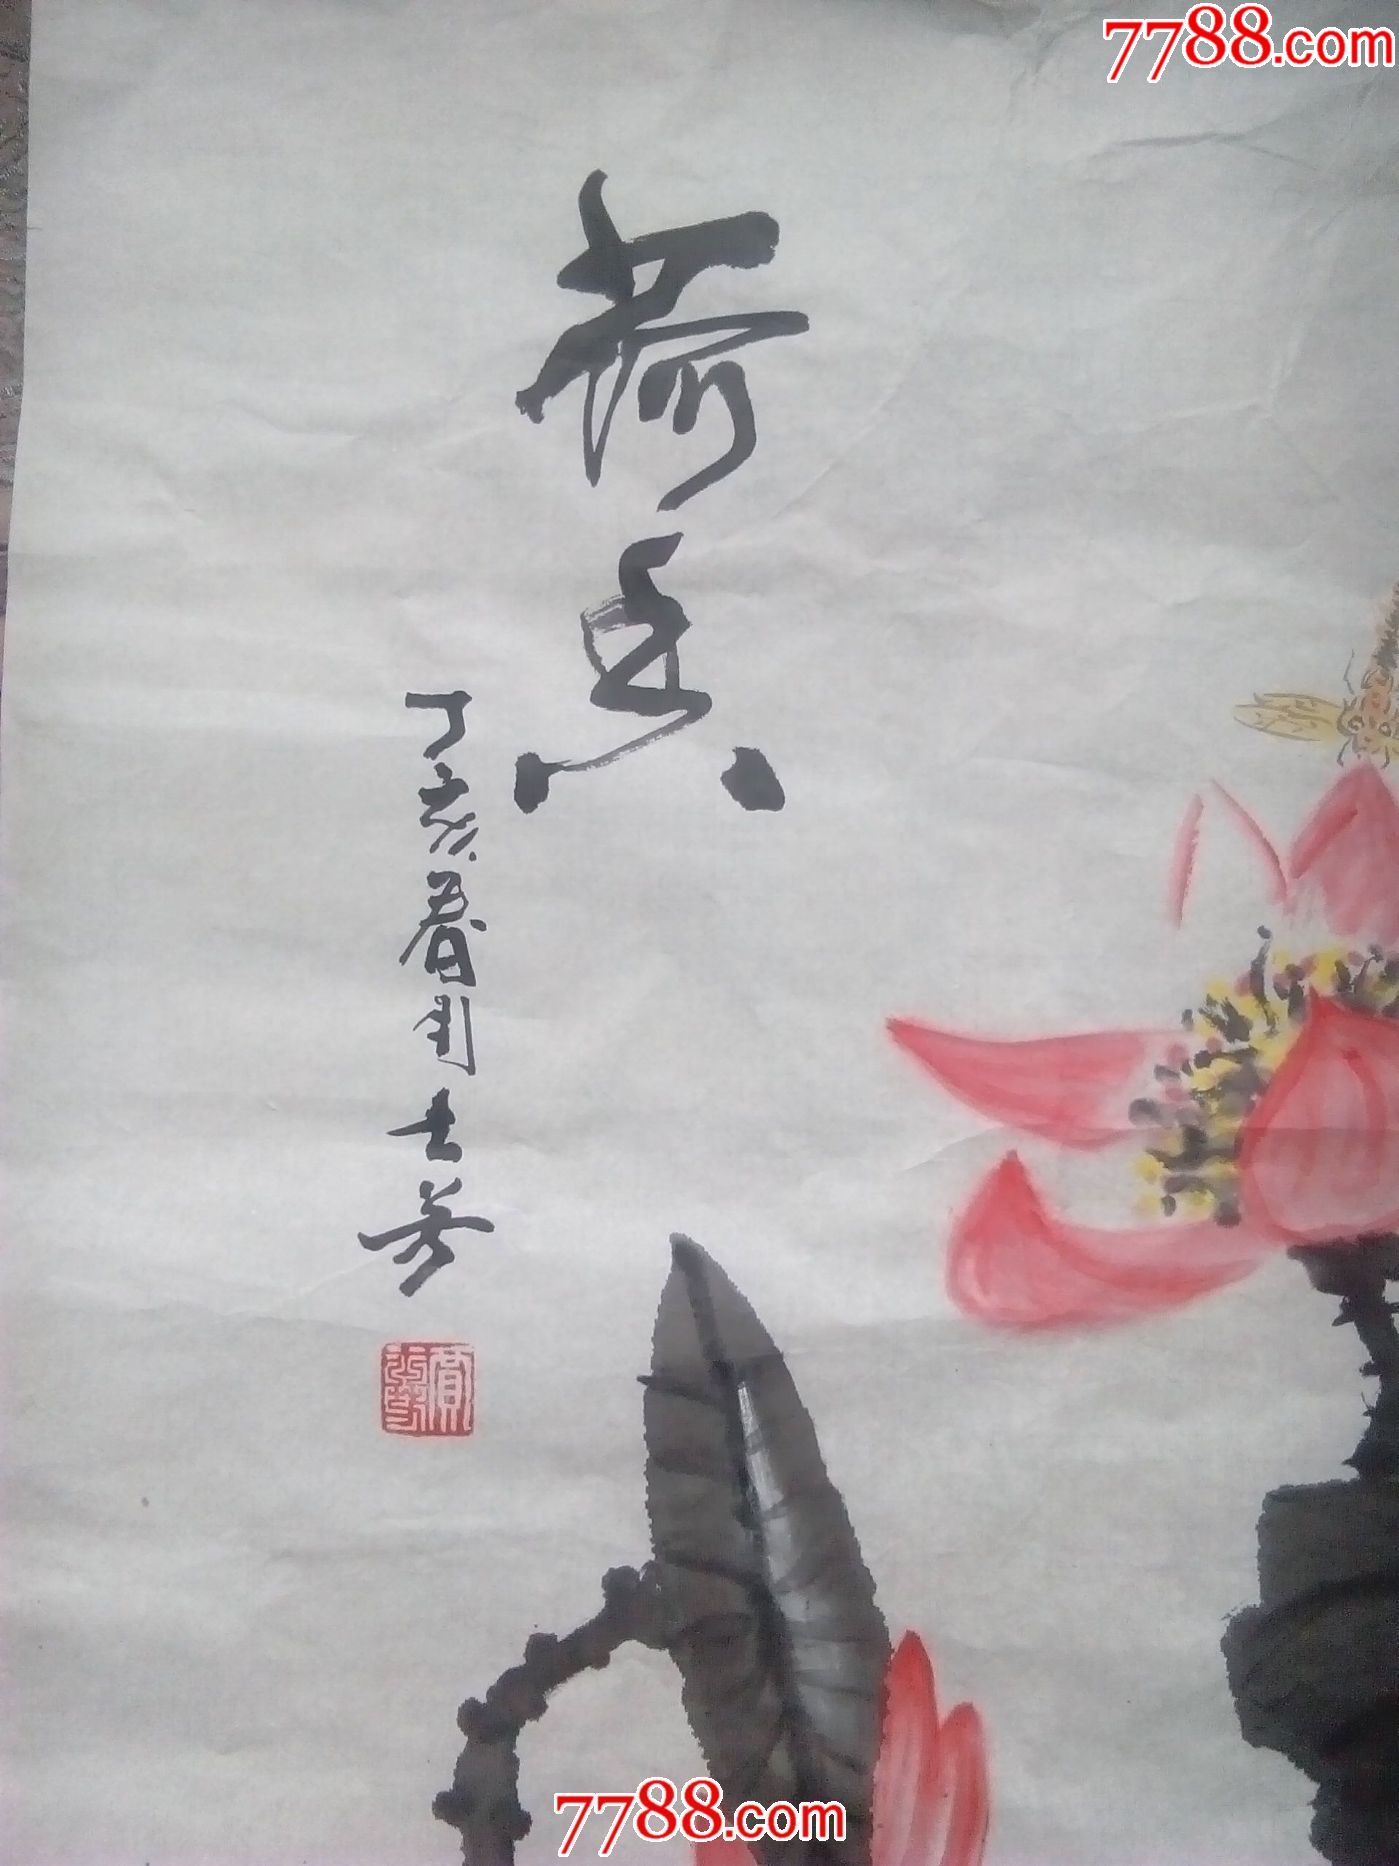 7788.com
荷香
丁亥春月士芳
7788.com